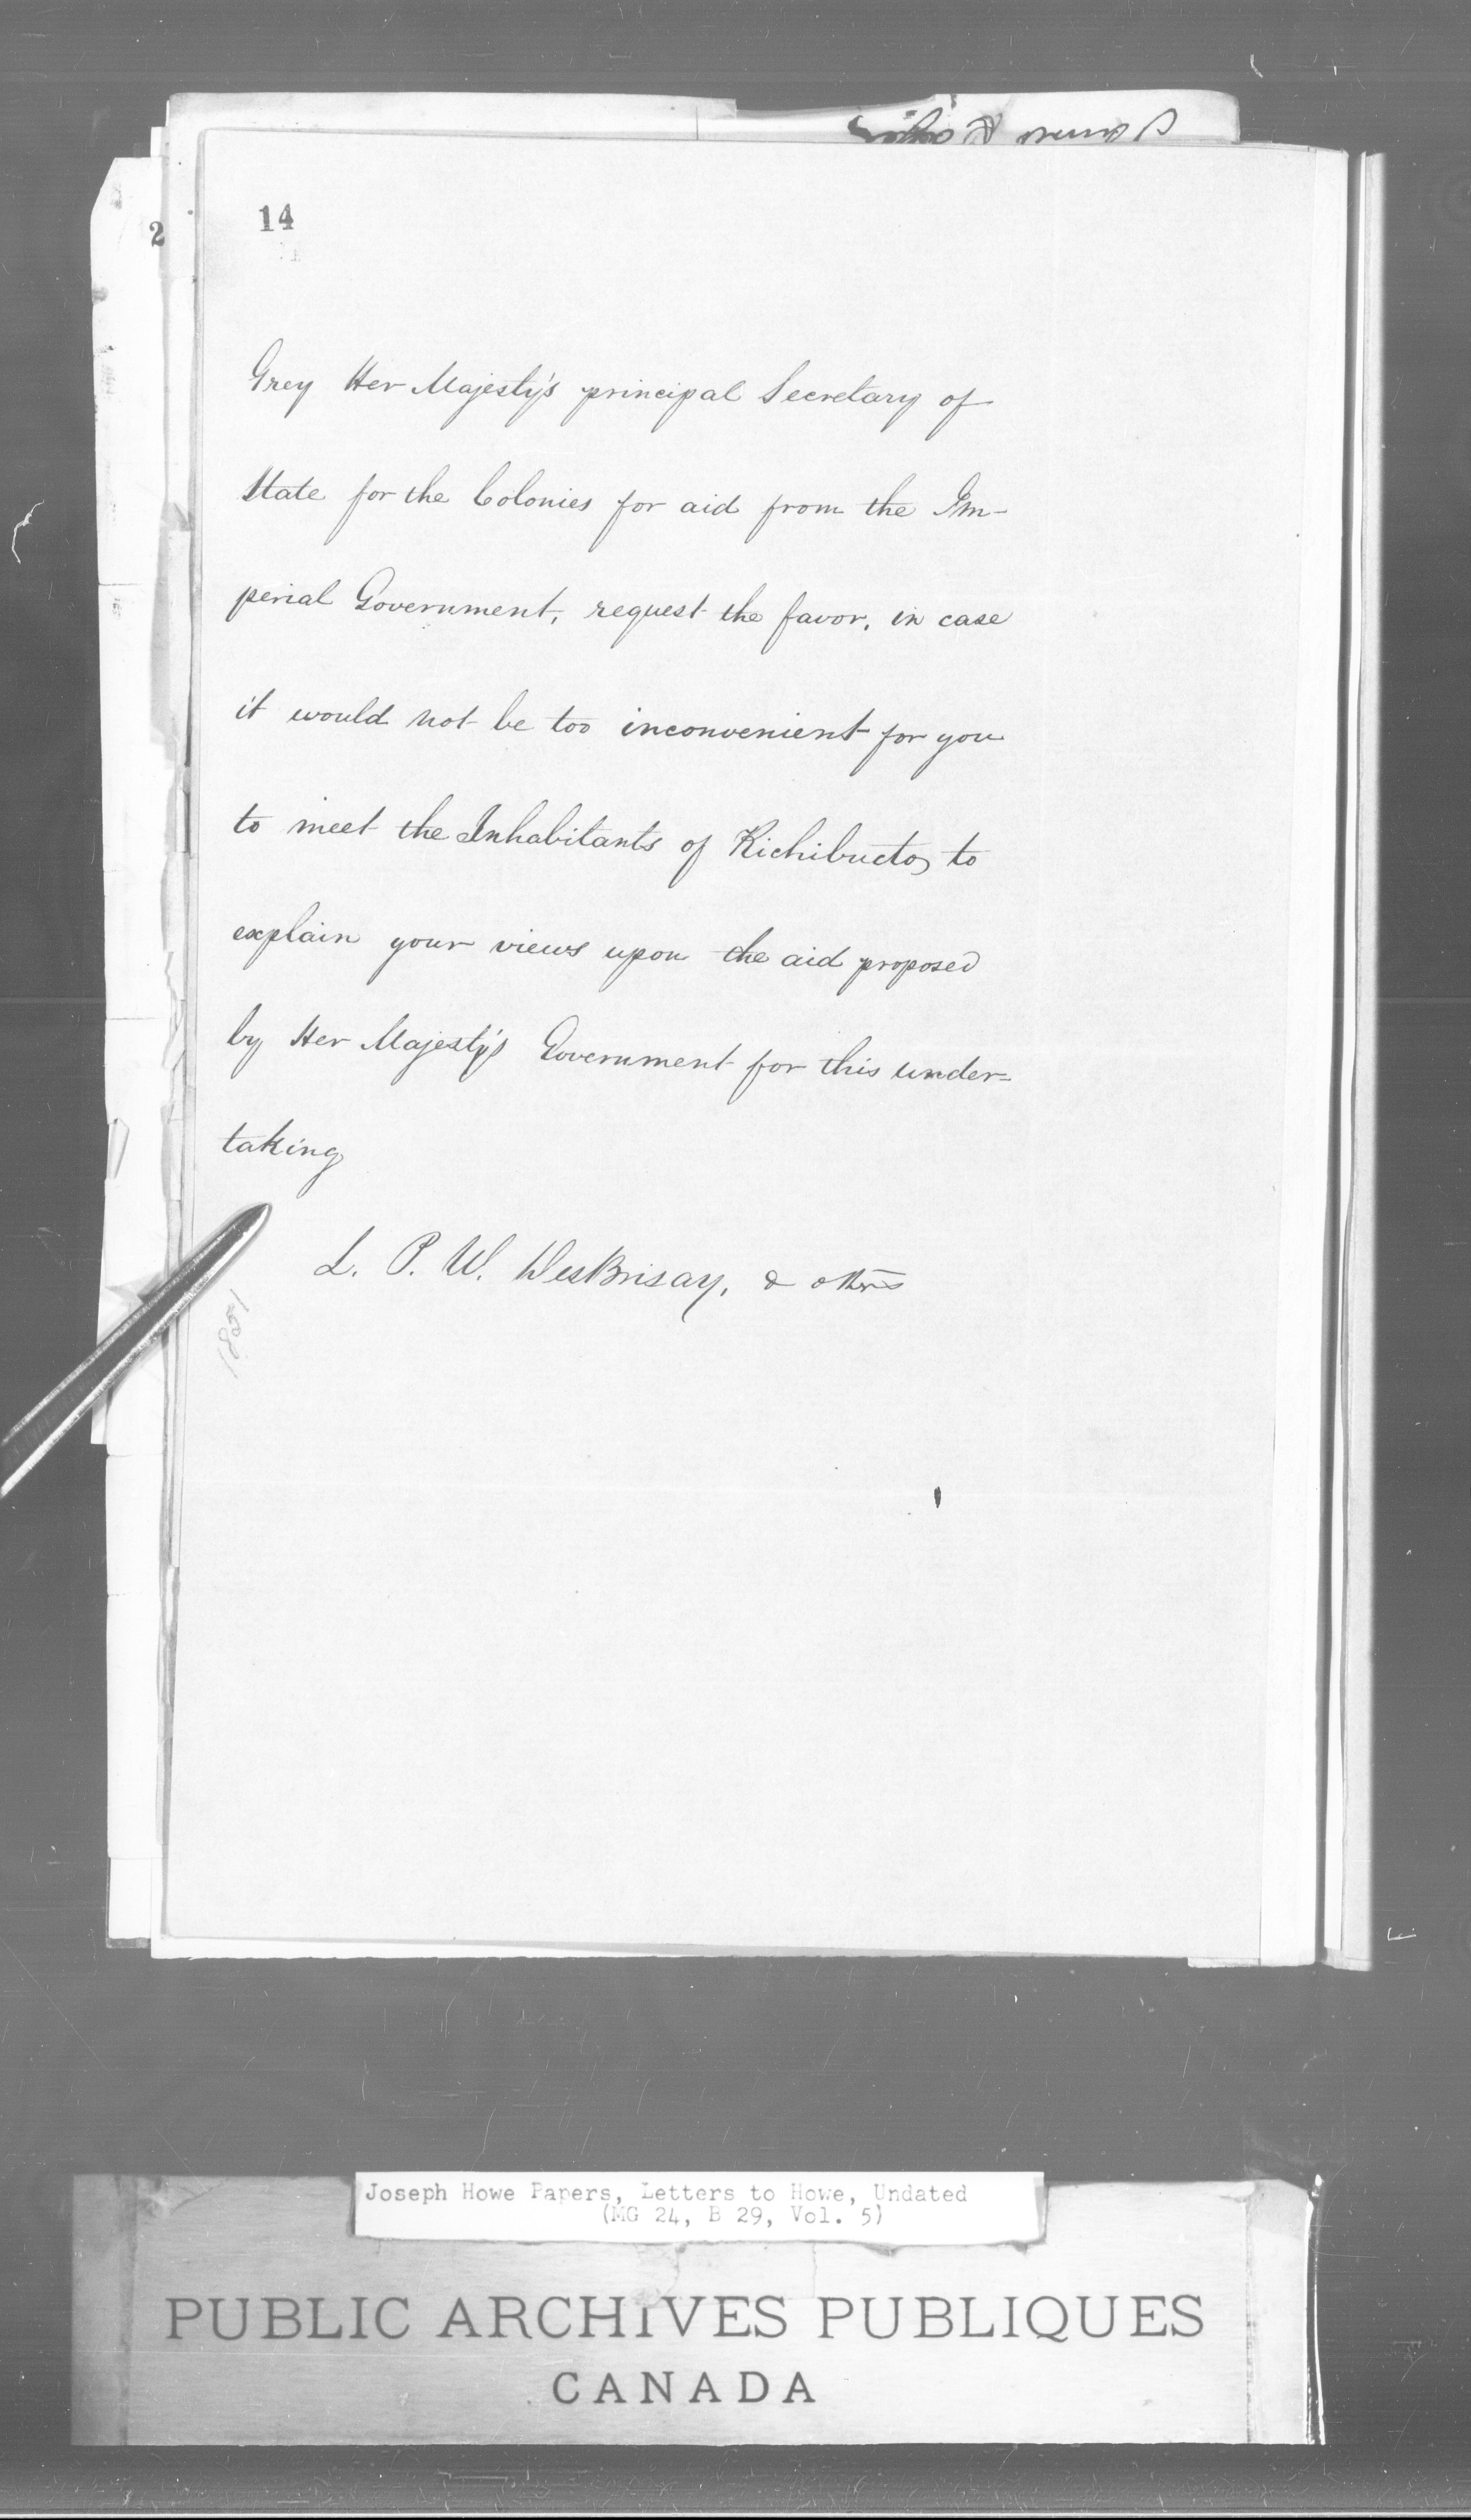 2
14
Grey Her Majesty's principal Secretary of
State for the Colonies for aid from the Im-
perial Government, request the favor, in case
it would not be too inconvenient for you
to meet the Inhabitants of Richibucto, to
explain your views upon the aid proposed
by Her Majesty's Government for this under=
taking
L. P. W. DesBrisay, & others
1851
Joseph Howe Papers, Letters to Howe, Undated
(MG 24, B 29, Vol. 5)
PUBLIC ARCHIVES PUBLIQUES
CANADA